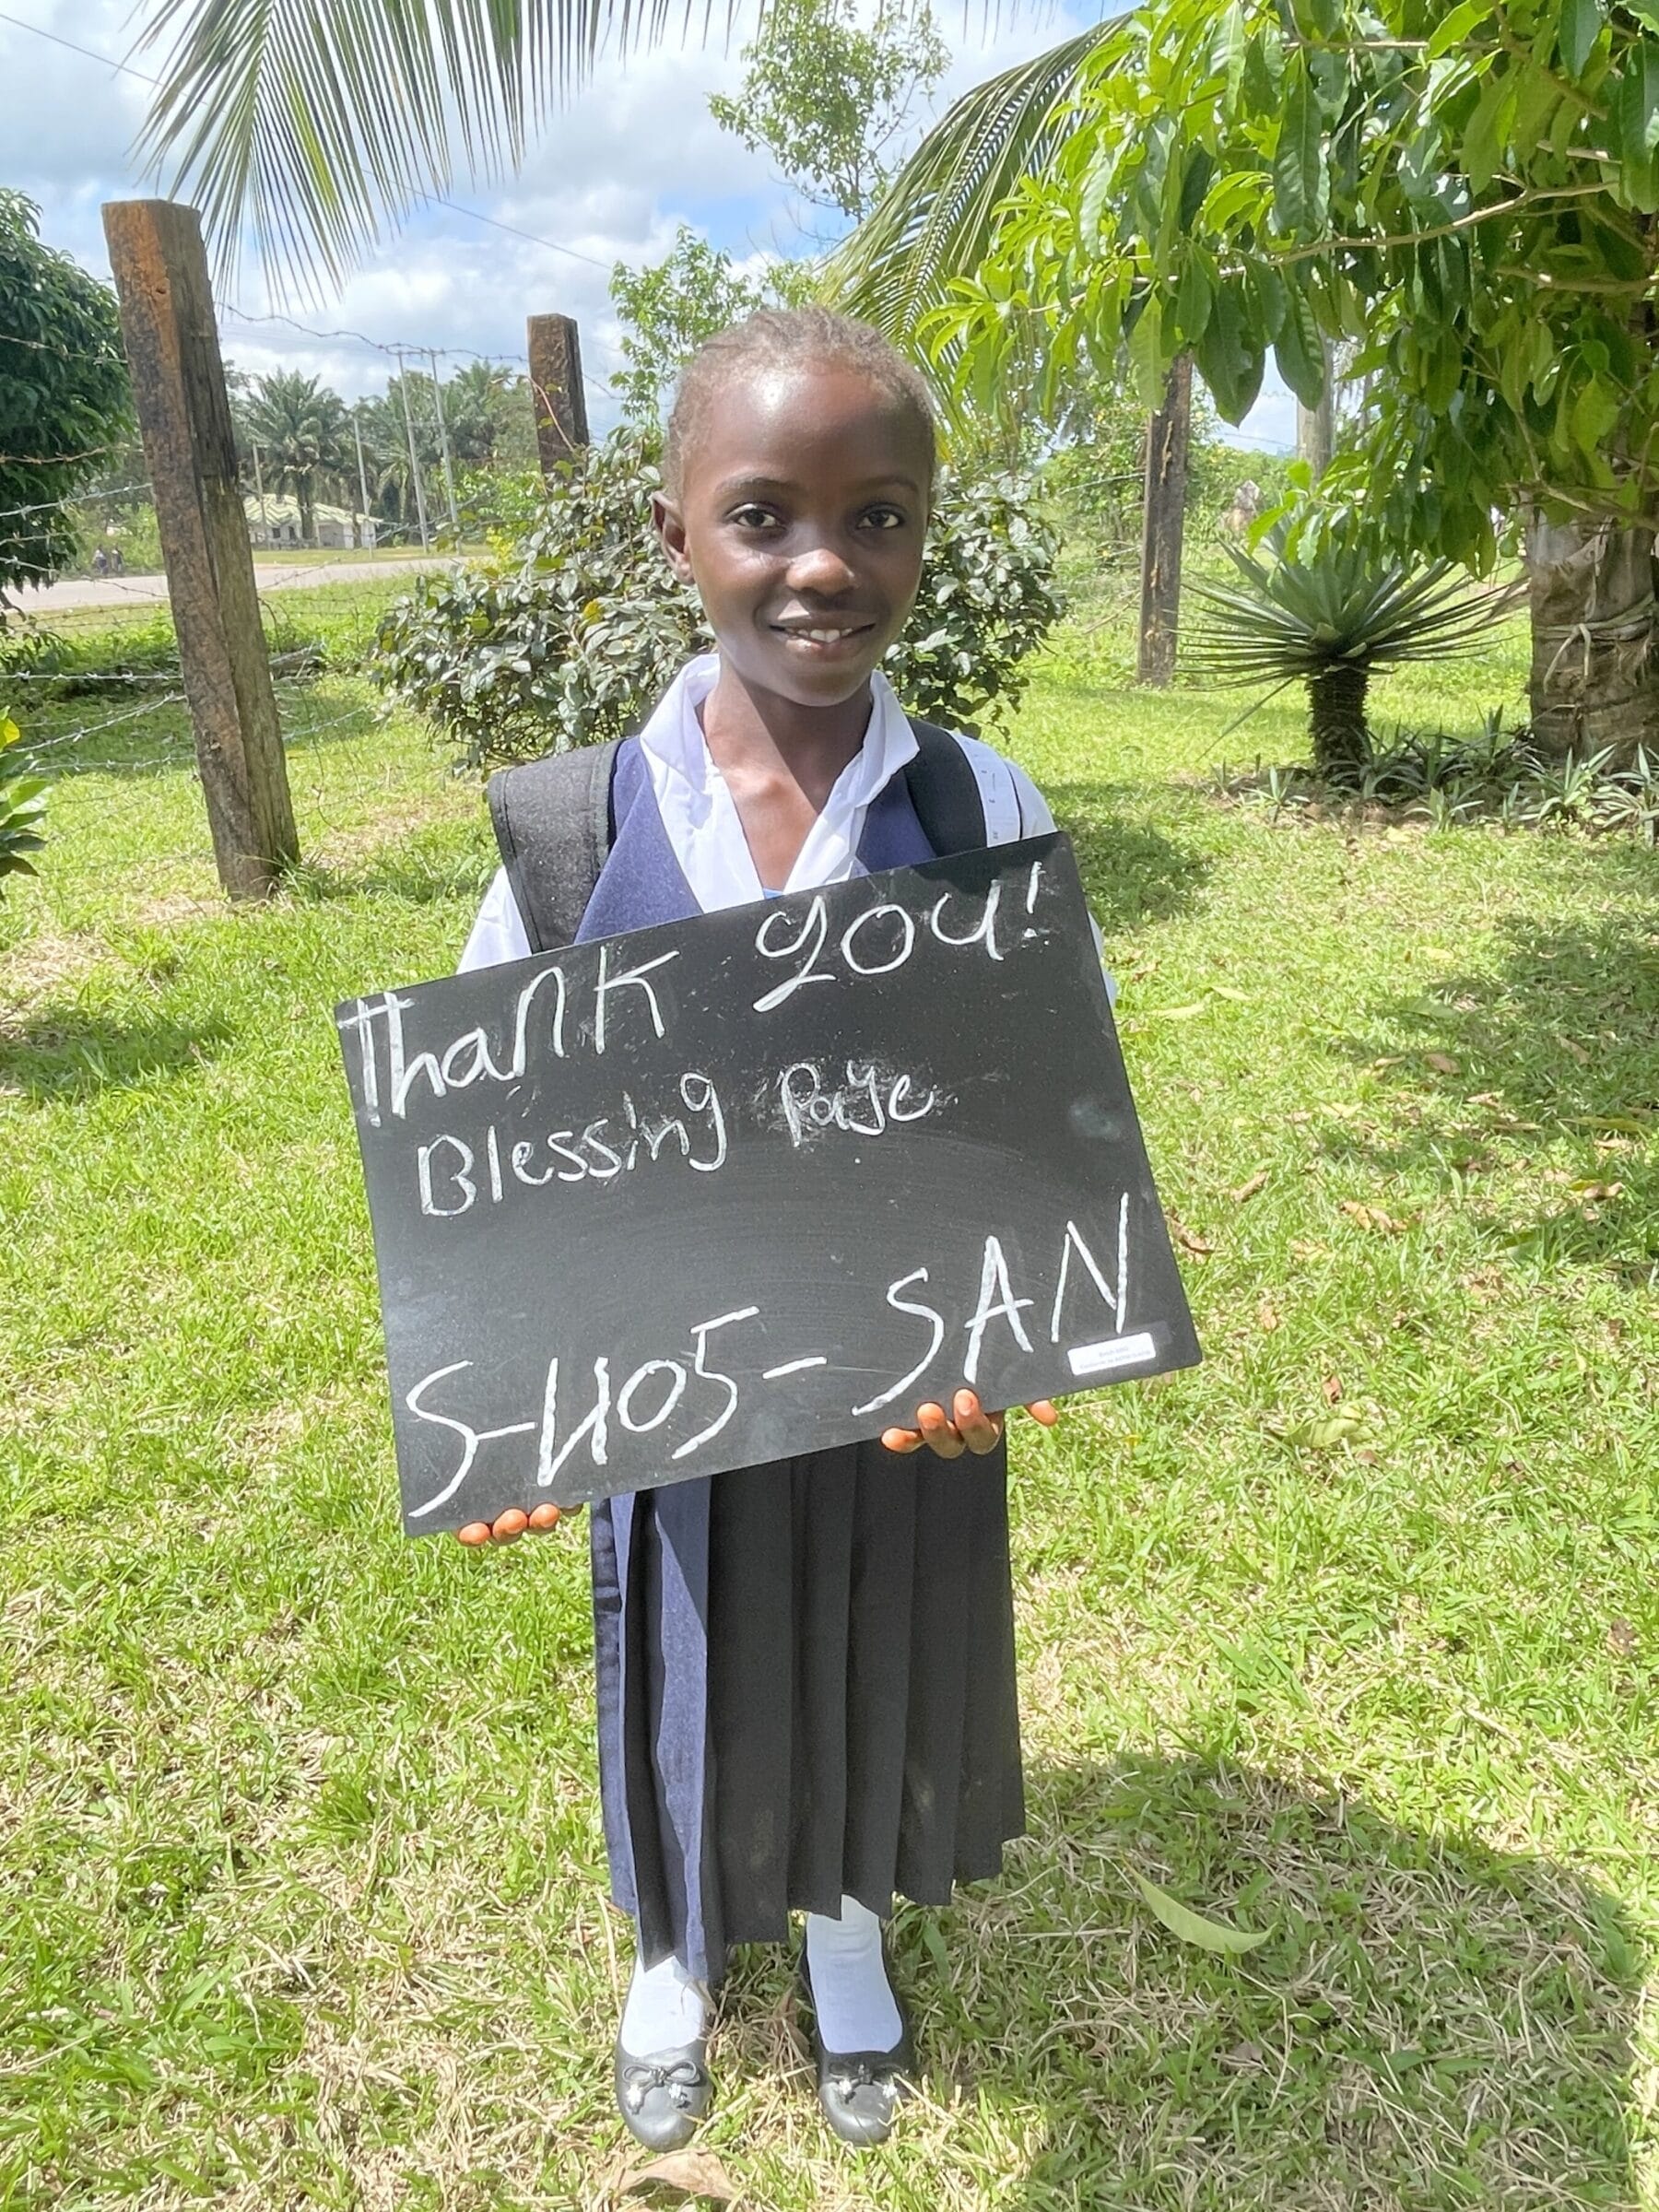 Thank you!
Blessing Paye
S-405-SAN